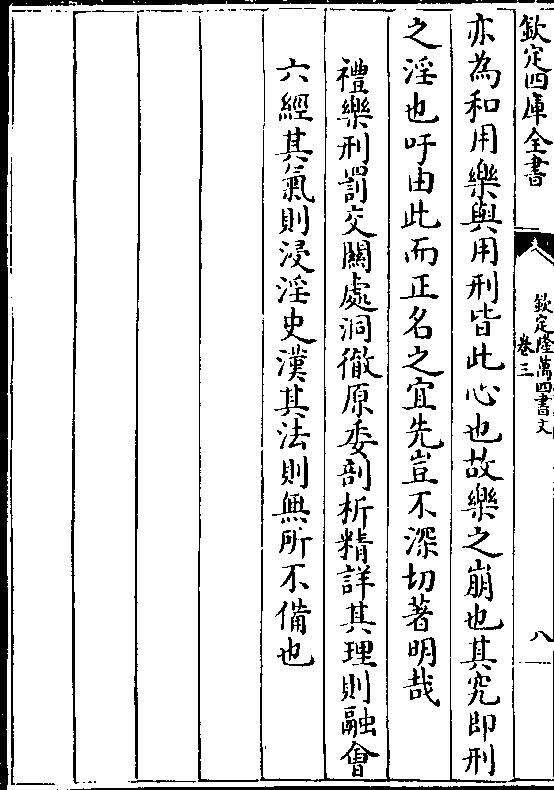 欽定四庫全書
欽定隆萬四書文
卷三
八
亦為和用樂與用刑皆此心也故樂之崩也其究即刑
之淫也吁由此而正名之宜先豈不深切著明哉
禮樂刑罰交關處洞徹原委剖析精詳其理則融會
六經其氣則浸淫史漢其法則無所不備也